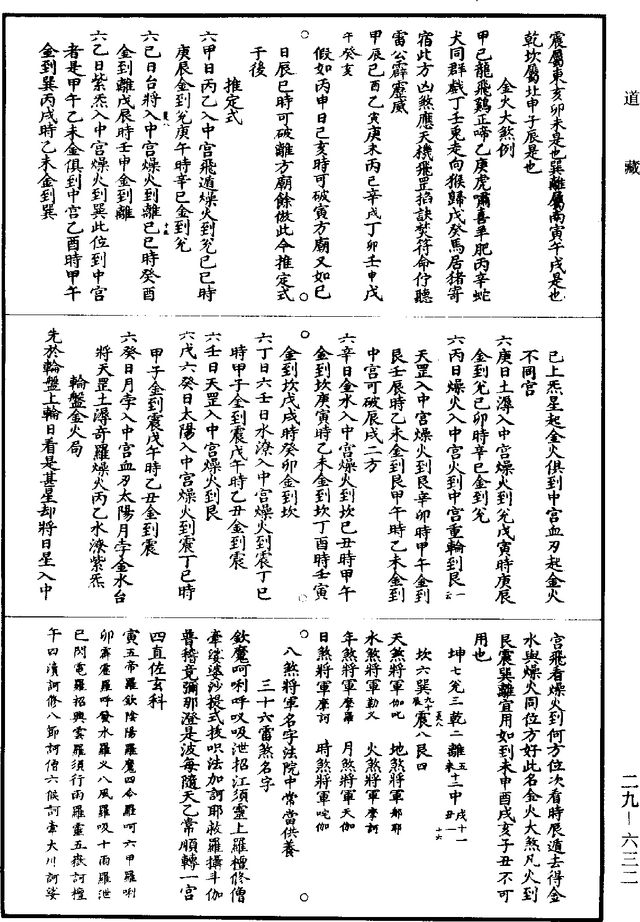 道藏
震屬東亥卯未是也巽離屬南寅午戌是也
乾坎屬北申子辰是也
金火大煞例
甲己龍飛鷄正啼乙庚虎嘯喜羊肥丙辛蛇
犬同群戲丁壬兎走向猴歸戊癸馬居猪寄
宿此方凶煞應天機飛罡掐訣焚符命佇聽
雷公霹靂威
甲辰己酉乙寅庚未丙巳辛戌丁卯壬申戊
午癸亥
假如丙申日己亥時可破寅方廟又如己
日辰巳時可破離方廟餘倣此今推定式
于後
推定式
六甲日丙乙入中宮飛遁燥火到兊己巳時
庚辰金到兊庚午時辛巳金到兊
六己日台將入中宮燥火到離己巳時癸酉
金到離戊辰時壬申金到離
六乙日紫炁入中宮燥火到巽此位到中宮
者是甲午乙未金俱到中宮乙酉時甲午
金到巽丙戌時乙未金到巽
已上炁星起金火俱到中宮血刃起金火
不同宮
六庚日土潯入中宮燥火到兊戊寅時庚辰
金到兊己卯時辛巳金到兊
六丙日燥火入中宮火到中宮重輪到艮
天罡入中宮燥火到艮辛卯時甲午金到
艮壬辰時乙未金到艮甲午時乙未金到
中宮可破辰戌二方
六辛日金水入中宮燥火到坎己丑時甲午
金到坎庚寅時乙未金到坎丁酉時壬寅
金到坎戊戌時癸卯金到坎
六丁日六壬日水潦入中宮燥火到震丁巳
時甲子金到震戊午時乙丑金到震
六壬日天罡入中宮燥火到艮
六戊六癸日太陽入中宮燥火到震丁巳時
甲子金到震戊午時乙丑金到震
六癸日月孛入中宮血刃太陽月孛金水台
將天罡土潯奇羅燥火丙乙水潦紫炁
輪盤金火局
先於輪盤上輪日看是甚星却將日星入中
宮飛看燥火到何方位次看時辰遁去得金
水與燥火同位方好此名金火大煞凡火到
艮震巽離宜用如到未申酉戌亥子丑不可
用也
坤七兊三乾二離五十二中戌十一丑一
坎六巽九十震八艮四
天煞將軍伽吒 地煞將軍娜耶
水煞將軍勒义 火煞將軍摩訶
年煞將軍摩羅 月煞將軍天伽
日煞將軍摩訶 時煞將軍唵伽
八煞將軍名字法院中常當供養
三十六雷煞名字
欽魔呵唎呼叹吸泄招江須靈上羅檀修僧
牽娑婆沙提式扙吶法加訶耶赦羅攝斗伽
普稽竟彌那澄是波每隨天乙常順轉一宮
四直佐玄科
寅五帝羅欽陰陽羅魔四令羅呵六甲羅唎
卯霹靂羅呼發水羅义八風羅吸十雨羅泄
巳閃電羅招興雲羅須行雨羅靈五嶽訶檀
午四瀆訶修八節訶僧六候訶牽大川訶娑
二九－六三二